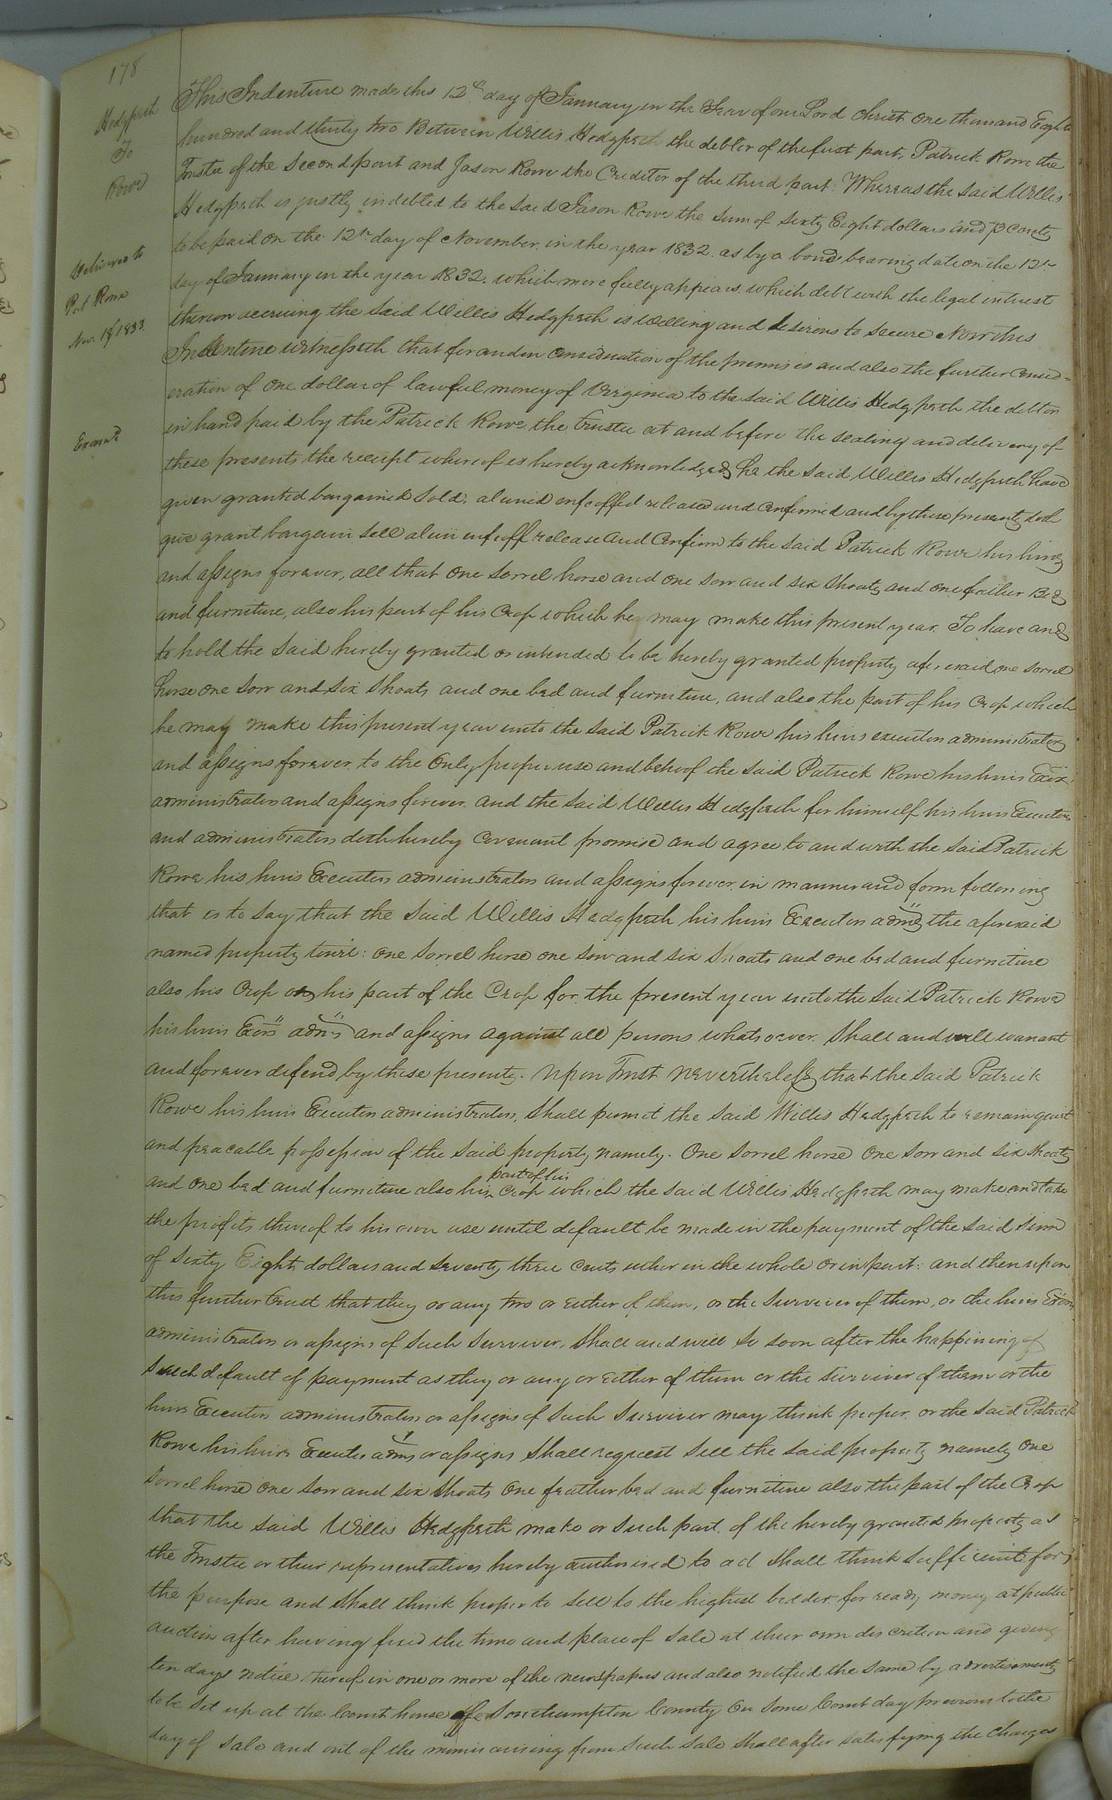 178
Hedgpeth
To
Rowe
Delivered to
Pat Rowe
Nov. 18 1833
Examd
This Indenture made this 12th day of January in the Year of our Lord Christ One thousand Eight
hundred and thirty two Between Willis Hedgpeth the debtor of the first part, Patrick Rowe the
Trustee of the Second part and Jason Rowe the Creditor of the third part. Whereas the said Willis
Hedgpeth is justly indebted to the said Jason Rowe the Sum of Sixty Eight dollars and 73 cents
to be paid on the 12th day of November in the year 1832 as by a bond bearing date on the 12th
day of January in the year 1832. which more fully appears which debt with the legal interest
thereon accruing the Said Willis Hedgpeth is willing and desirous to Secure Now this
Indenture witnesseth that for and in Consideration of the premises and also the further Consid-
eration of one dollar of lawful money of Virginia to the said Willis Hedgpeth the debtor
in hand paid by the Patrick Rowe the trustee at and before the sealing and delivery of
these presents the receipt whereof is hereby acknowledged he the said Willis Hedgpeth have
given granted bargained Sold, aliened enfeoffed released and Confirmed and by these presents doth
give grant bargain Sell alien enfeoff release and Confirm to the said Patrick Rowe his heirs
and assigns forever, all that One Sorrel horse and one Sow and six Shoats and one feather Bed
and furniture, also his part of his Crop which he may make this present year. To have and
to hold the Said hereby granted or intended to be hereby granted property aforesaid one Sorrel
horse one Sow and Six Shoats and one bed and furniture, and also the part of his Crop which
he may make this present year unto the Said Patrick Rowe his heirs executors administrators
and assigns forever to the Only proper use and behoof the Said Patrick Rowe his heirs Exors
administrators and assigns forever. and the Said Willis Hedgpeth for himself his heirs Executors
and administrators doth hereby Covenant promise and agree to and with the said Patrick
Rowe his heirs Executors administrators and assigns forever in manner and form following
that is to Say that the Said Willis Hedgpeth his heirs Executors admrs the aforesaid
named property towit: one Sorrel horse one Sow and six Shoats and one bed and furniture
also his Crop or his part of the Crop for the present year unto the Said Patrick Rowe
his heirs Exors admrs and assigns against all persons whatsoever Shall and will warrant
and forever defend by these presents. Upon Trust Nevertheless that the Said Patrick
Rowe his heirs Executors administrators, Shall permit the Said Willis Hedgpeth to remain quiet
and peacable possession of the Said property namely. One Sorrel horse One Sow and Six Shoats
part of his
and one bed and furniture also his Crop which the Said Willis Hedgpeth may make and take
the profits thereof to his own use until default be made in the payment of the Said Sum
of Sixty Eight dollars and Seventy three Cents either in the whole or in part: and then upon
this further trust that they or any two or Either of them, or the Surviver of them, or the heirs Exors
administrators or assigns of Such Surviver, Shall and will So soon after the happining of
Such default of payment as they or any or Either of them or the Surviver of them or the
heirs Executors administrators or assigns of Such Surviver may think proper, or the said Patrick
Rowe his heirs Executors admrs or assigns Shall request Sell the Said property namely One
Sorrel horse one Sow and six Shoats One feather bed and furniture also the part of the Crop
that the Said Willis Hedgpeth make or Such part of the hereby granted property as
the Trustee or their representatives hereby authorised to act Shall think Sufficient for
the purpose and Shall think proper to Sell to the highest bidder for ready money at public
auction after having fixed the time and place of Sale at their own discretion and giving
ten days notice thereof in one or more of the newspapers and also notified the Same by advertisements
to be Set up at the Court house of Southampton County On Some Court day previous to the
day of Sale and out of the monies arising from Such Sale Shall after Satisfying the Charges